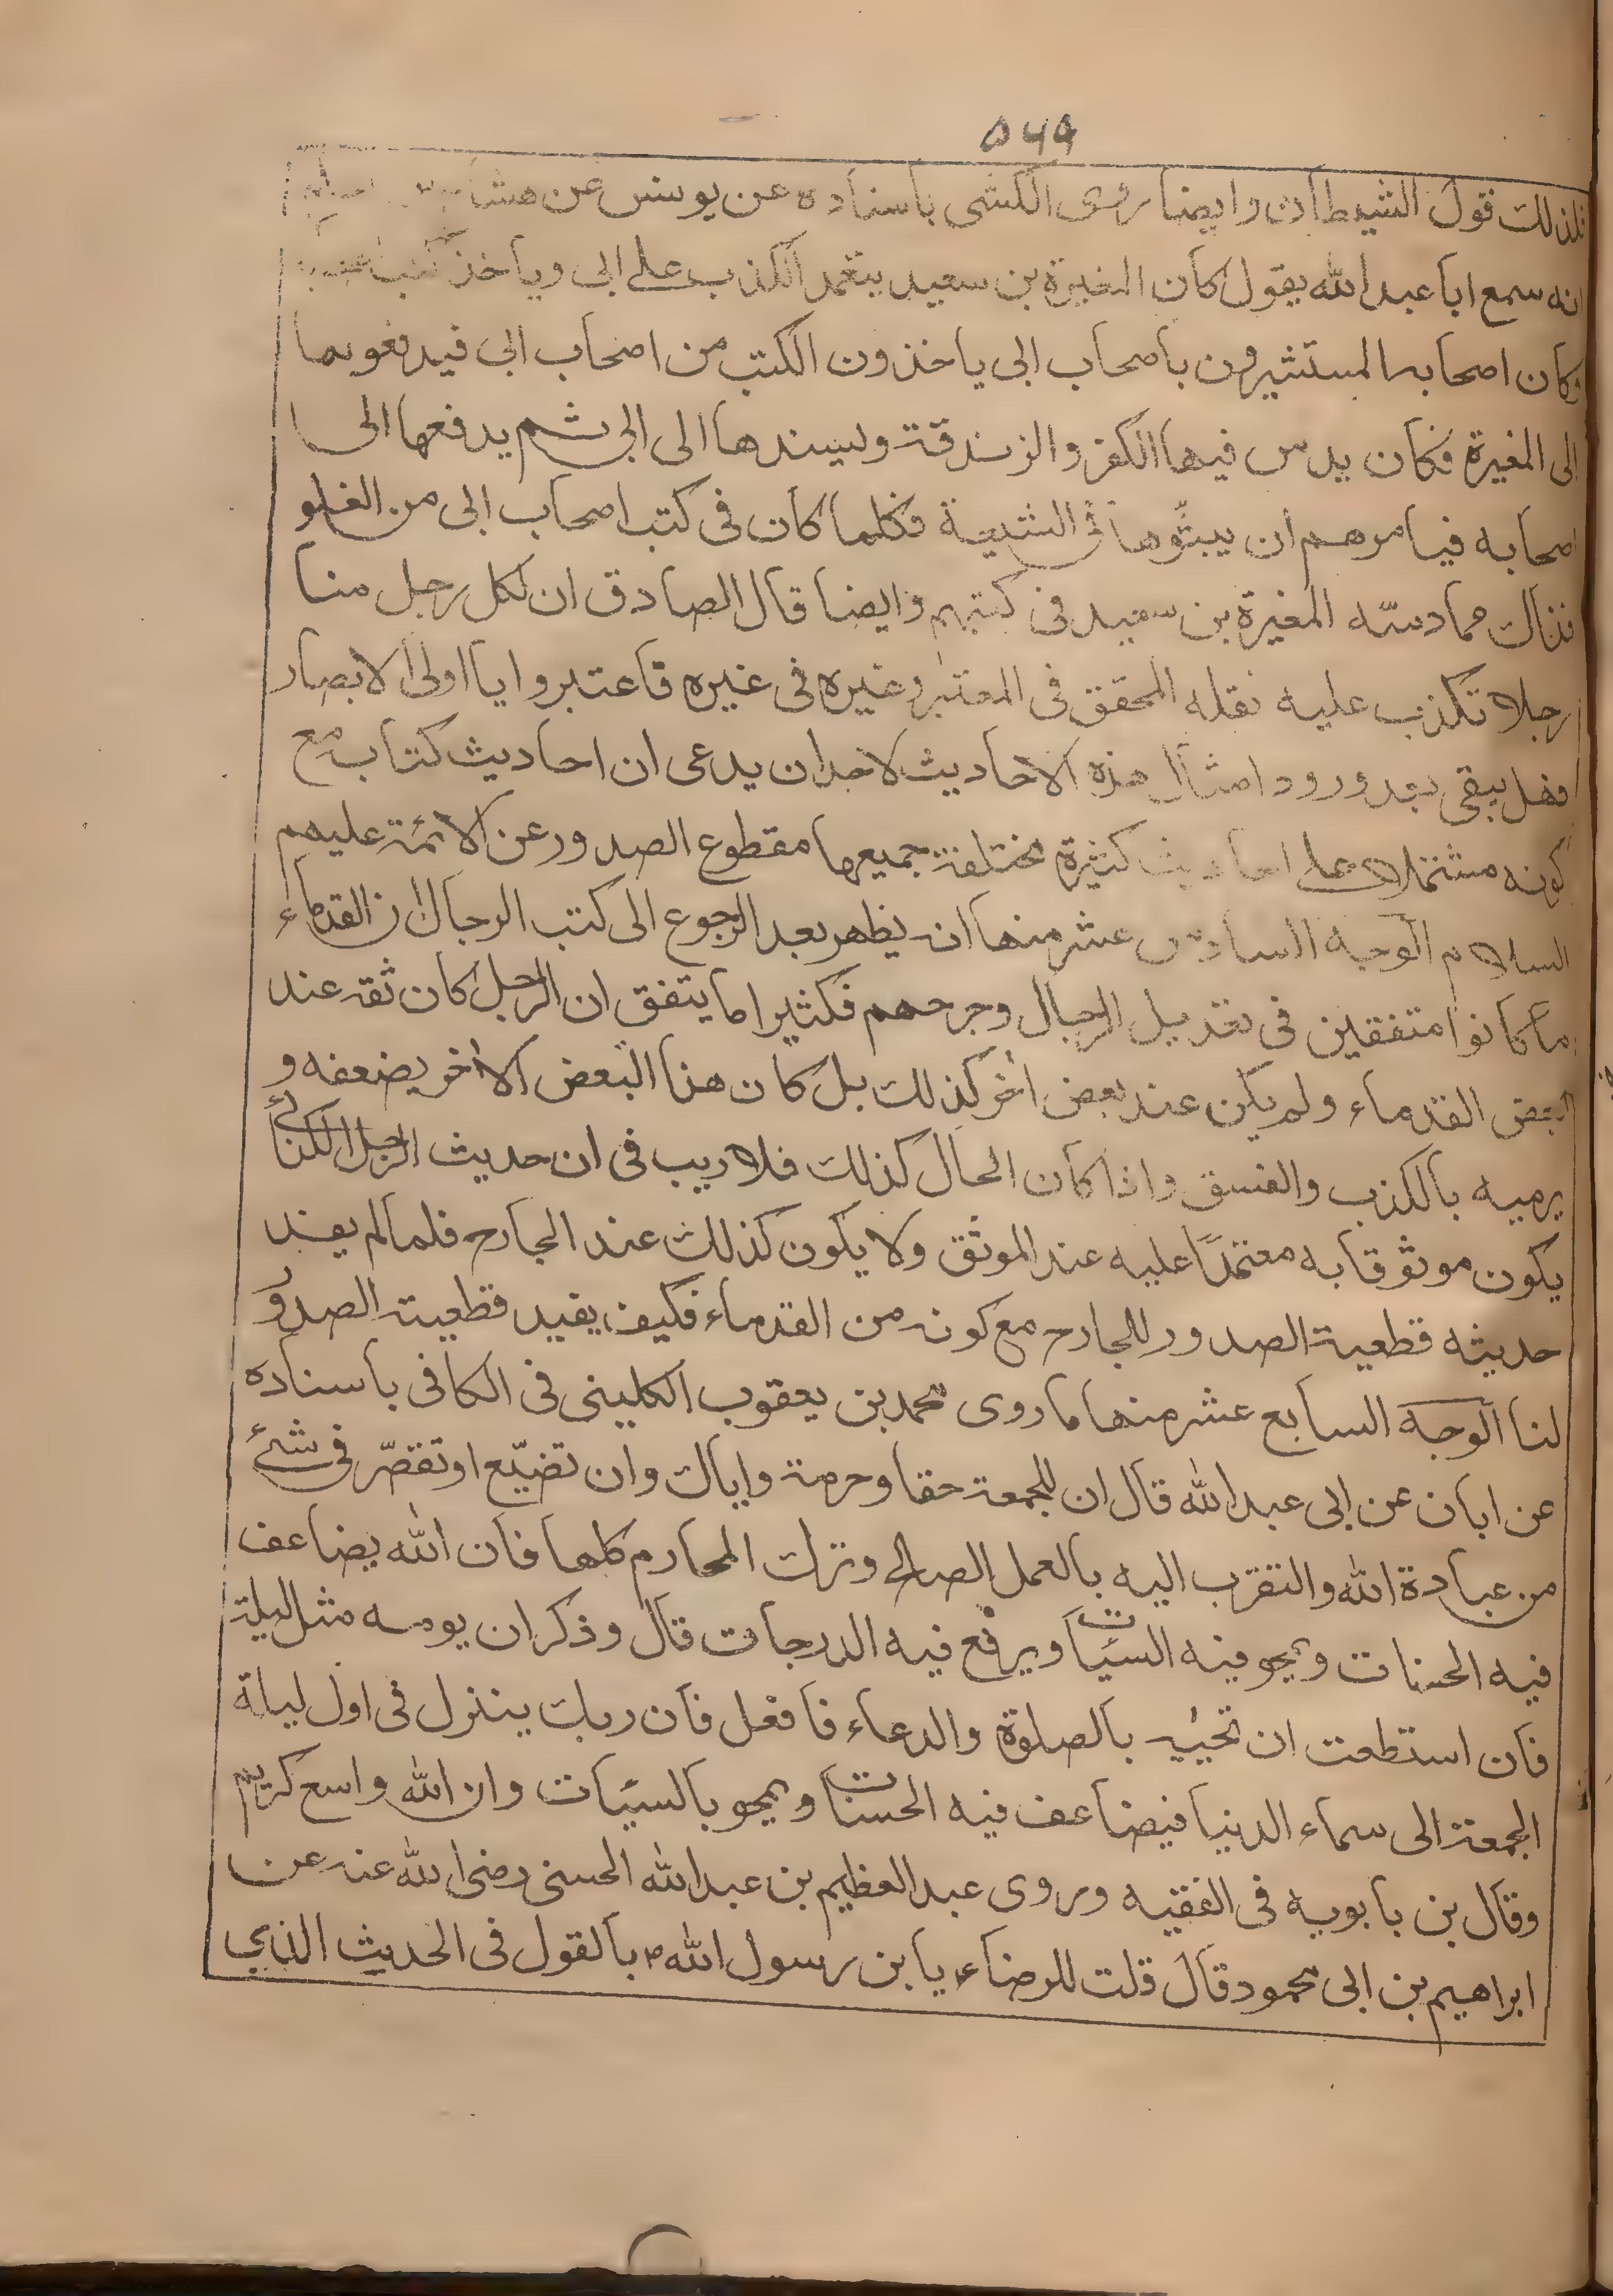 ٥٤٩
فلذلك قول الشيطان وايضا روى الكشى باسناده عن يونس عن هشام
انه سمع ابا عبدالله يقول كان المغيرة بن سعيد يتعمد الكذب على ابى وياخذ كتب
وكان اصحابه المستترون باصحاب ابى ياخذون الكتب من اصحاب ابى فيدفعونها
الى المغيرة فكان يدس فيها الكفر والزندقة ويسندها الى ابى ثم يدفعها الى
اصحابه فيامرهم ان يبثّوها فى الشيعة فكلما كان فى كتب اصحاب ابى من الغلو
فذاك مما دسّه المغيرة بن سعيد فى كتبهم وايضا قال الصادق ان لكل رجل منا
رجلا تكذب عليه نقله المحقق فى المعتبر وغيره فى غيره فاعتبروا يا اولى الابصار
فهل يبقى بعد ورود امثال هذه الاحاديث لاحد ان يدعى ان احاديث كتاب مع
كونه مشتملا على احاديث كثيرة مختلفة جميعها مقطوع الصدور عن الائمة عليهم
السلام الوجه السادس عشر منها انه يظهر بعد الرجوع الى كتب الرجال ان القدماء
ما كانوا متفقين فى تعديل الرجال وجرحهم فكثيرا ما يتفق ان الرجل كان ثقه عند
بعض القدماء ولم يكن عند بعض اخر كذلك بل كان هذا البعض الاخر يضعفه و
يرميه بالكذب والفسق واذا كان الحال كذلك فلا ريب فى ان حديث الرجل الكذائى
يكون موثوقا به معتمدًا عليه عند الموثق ولا يكون كذلك عند الجارح فلما لم يفيد
حديثه قطعية الصدور للجارح مع كونه من القدماء فكيف يفيد قطعية الصدور
لنا الوجه السابع عشر منها ما روى محمد بن يعقوب الكلينى فى الكافى باسناده
عن ابان عن ابى عبدالله قال ان للجمعة حقا وحرمة واياك وان تضيّع او تقصّر فى شئ
من عبادة الله والتقرب اليه بالعمل الصالح وترك المحارم كلها فان الله يضاعف
فيه الحسنات ويمحو فيه السيئات ويرفع فيه الدرجات قال وذكر ان يومه مثل ليلة
فان استطعت ان تحييه بالصلوة والدعاء فافعل فان ربك ينزل فى اول ليلة
الجمعة الى سماء الدنيا فيضاعف فيه الحسنات ويمحو بالسيئات وان الله واسع كريم
وقال بن بابويه فى الفقيه وروى عبدالعظيم بن عبدالله الحسنى رضى الله عنه عن
ابراهيم بن ابى محمود قال قلت للرضاء يا بن رسول الله ص بالقول فى الحديث الذى